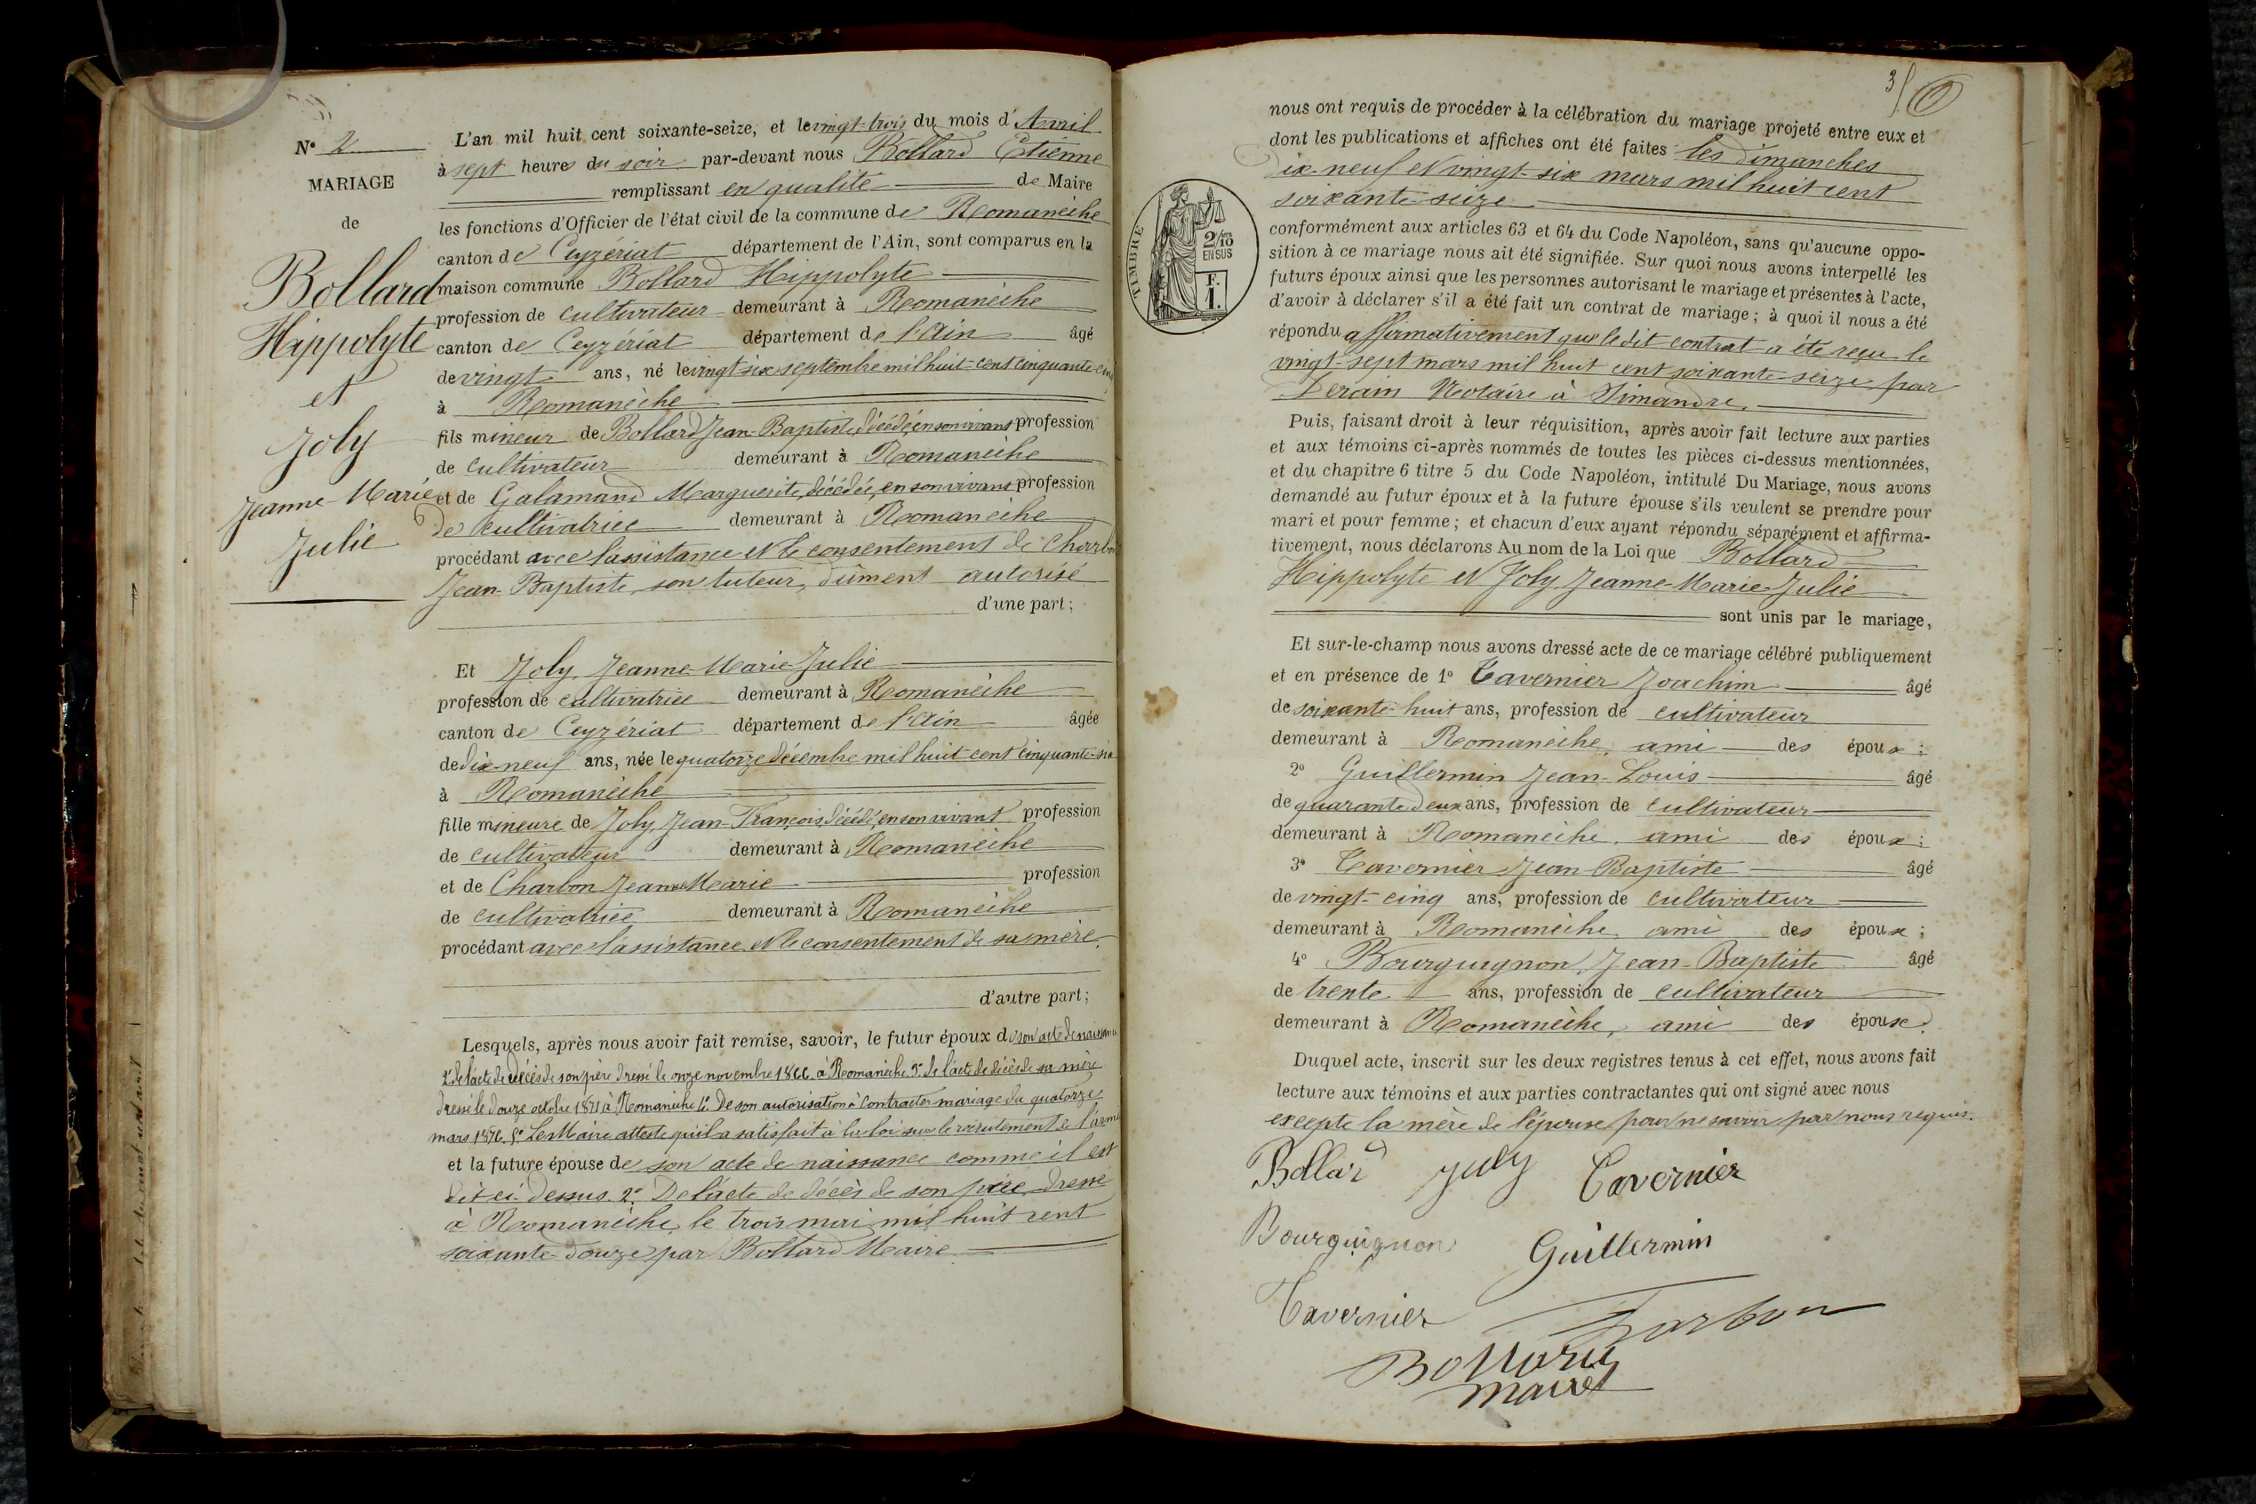 N° 2
MARIAGE
de
Bollard
Hippolyte
et
Joly
Jeanne-Marie
Julie
L'an mil huit cent soixante-seize, et le vingt-trois du mois d'Avril
à sept heure du soir par-devant nous Bollard Etienne
remplissant en qualité de Maire
les fonctions d'Officier de l'état civil de la commune de Romanèche
canton de Ceyzériat département de l'Ain, sont comparus en la
maison commune Bollard Hippolyte
profession de cultivateur demeurant à Romanèche
canton de Ceyzériat département de l'Ain âgé
de vingt ans, né le vingt-six septembre mil huit-cent cinquante-cinq
à Romanèche
fils mineur de Bollard Jean-Baptiste, décédé, en son vivant profession
de cultivateur demeurant à Romanèche
et de Galamand Marguerite, décédée, en son vivant profession
de cultivatrice demeurant à Romanèche
procédant avec l'assistance et le consentement de Charbon
Jean-Baptiste, son tuteur, dûment autorisé
d'une part;
Et Joly Jeanne-Marie-Julie
profession de cultivatrice demeurant à Romanèche
canton de Ceyzériat département de l'Ain âgée
de dix-neuf ans, née le quatorze décembre mil huit cent cinquante-six
à Romanèche
fille mineure de Joly Jean-François, décédé, en son vivant profession
de cultivateur demeurant à Romanèche
et de Charbon Jeanne Marie profession
de cultivatrice demeurant à Romanèche
procédant avec l'assistance et le consentement de sa mère.
d'autre part;
Lesquels, après nous avoir fait remise, savoir, le futur époux de son acte de naissance
2° de l'acte de décès de son père dressé le onze novembre 1866 à Romanèche 3° de l'acte de décès de sa mère
dressé le douze octobre 1871 à Romanèche 4° De son autorisation à contracter mariage du quatorze
mars 1876. 5° Le Maire atteste qu'il a satisfait à la loi sur le recrutement de l'armée
et la future épouse de son acte de naissance comme il est
dit ci-dessus. 2° De l'acte de décès de son père dressé
à Romanèche le trois mai mil huit cent
soixante-douze par Bollard Maire
3
nous ont requis de procéder à la célébration du mariage projeté entre eux et
dont les publications et affiches ont été faites les dimanches
dix-neuf et vingt-six mars mil huit cent
soixante-seize
TIMBRE
2/10
EN SUS
F.
1.
conformément aux articles 63 et 64 du Code Napoléon, sans qu'aucune oppo-
sition à ce mariage nous ait été signifiée. Sur quoi nous avons interpellé les
futurs époux ainsi que les personnes autorisant le mariage et présentes à l'acte,
d'avoir à déclarer s'il a été fait un contrat de mariage; à quoi il nous a été
répondu affirmativement que ledit contrat a été reçu le
vingt-sept mars mil huit cent soixante-seize par
Notaire à Simandre.
Puis, faisant droit à leur réquisition, après avoir fait lecture aux parties
et aux témoins ci-après nommés de toutes les pièces ci-dessus mentionnées,
et du chapitre 6 titre 5 du Code Napoléon, intitulé Du Mariage, nous avons
demandé au futur époux et à la future épouse s'ils veulent se prendre pour
mari et pour femme; et chacun d'eux ayant répondu séparément et affirma-
tivement, nous déclarons Au nom de la Loi que Bollard
Hippolyte et Joly Jeanne-Marie-Julie
sont unis par le mariage,
Et sur-le-champ nous avons dressé acte de ce mariage célébré publiquement
et en présence de 1° Tavernier Joachim âgé
de soixante-huit ans, profession de cultivateur
demeurant à Romanèche, ami des époux;
2° Guillermin Jean-Louis âgé
de quarante deux ans, profession de cultivateur
demeurant à Romanèche, ami des époux;
3° Tavernier Jean-Baptiste âgé
de vingt-cinq ans, profession de cultivateur
demeurant à Romanèche, ami des époux;
4° Bourguignon Jean-Baptiste âgé
de trente ans, profession de cultivateur
demeurant à Romanèche, ami des époux.
Duquel acte, inscrit sur les deux registres tenus à cet effet, nous avons fait
lecture aux témoins et aux parties contractantes qui ont signé avec nous
excepté la mère de l'épouse pour ne savoir par nous requis.
Bollard Joly Tavernier
Bourguignon Guillermin
Tavernier
Bollard
maire